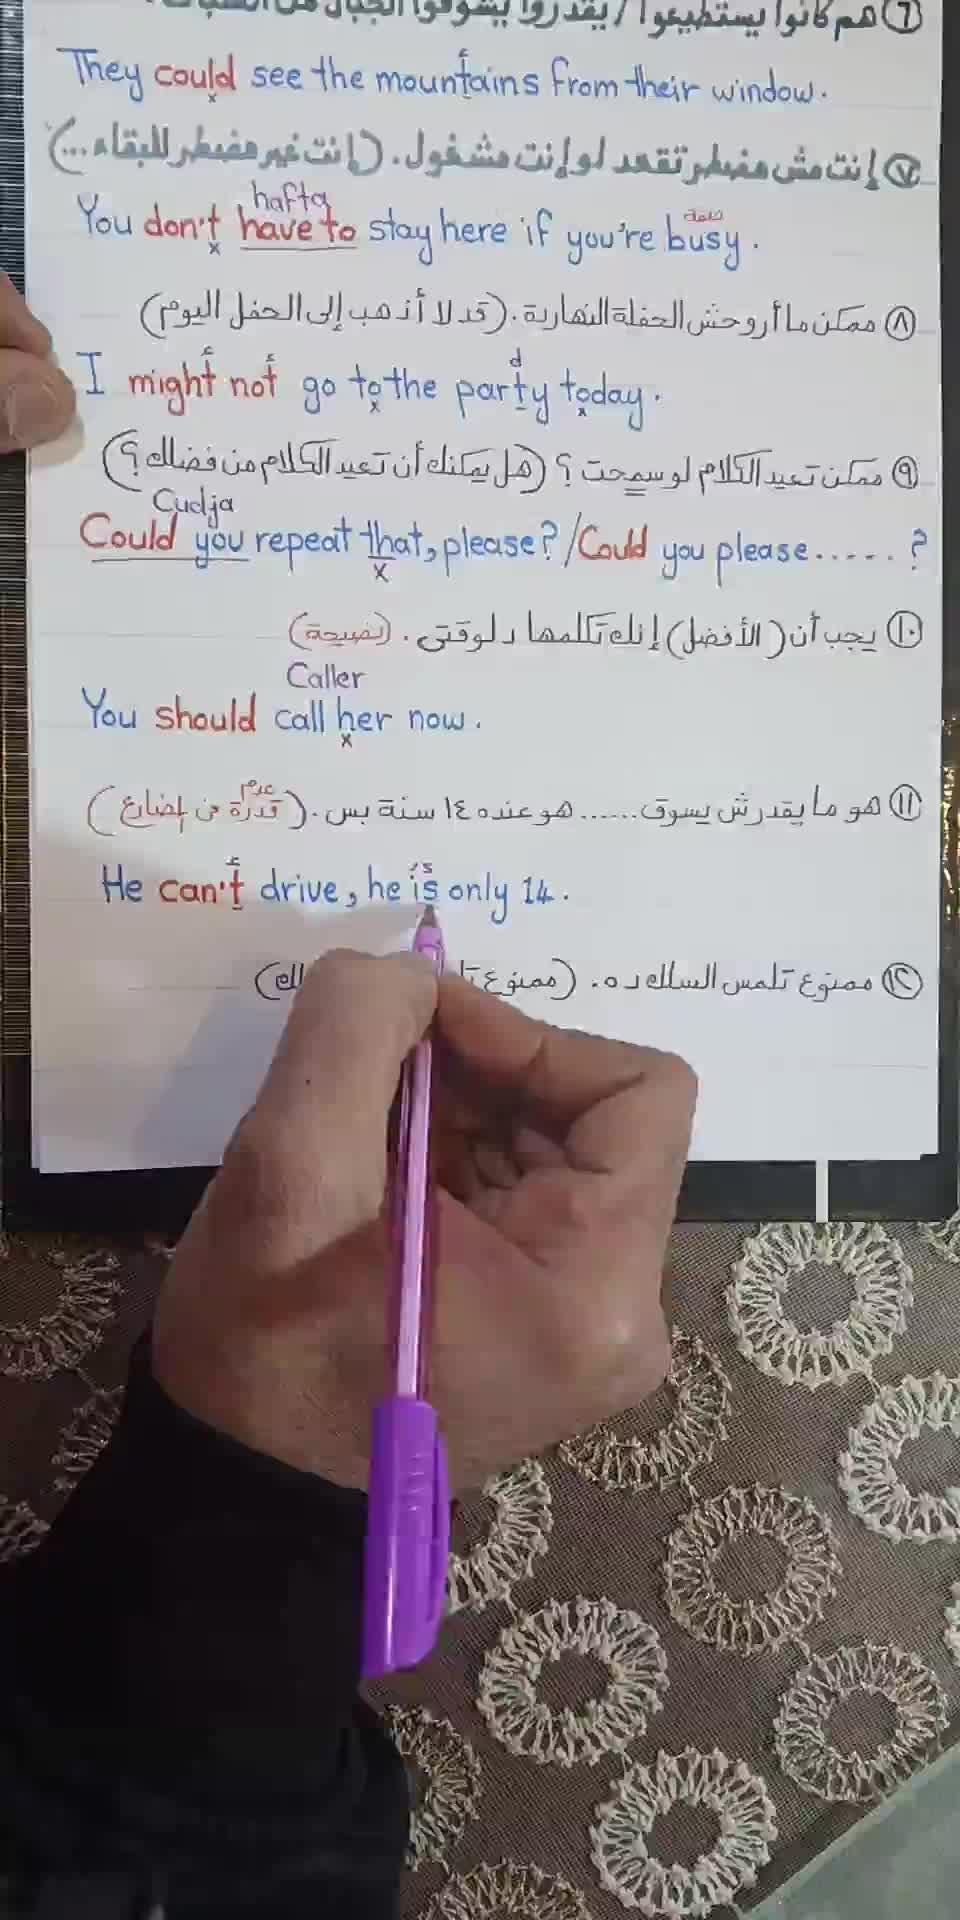 ٦ هم كانوا يستطيعوا / يقدروا يشوفوا الجبال من
They could see the mountains from their window.
٧ إنت مش مضطر تقعد لو إنت مشغول. (إنت غير مضطر للبقاء ...)
hafta
ضمة
You don't have to stay here if you're busy.
٨ ممكن ما أروحش الحفلة النهاردة. (قد لا أذهب إلى الحفل اليوم)
ء ء d
I might not go to the party today.
٩ ممكن تعيد الكلام لو سمحت؟ (هل يمكنك أن تعيد الكلام من فضلك؟)
Cudja
Could you repeat that, please? / Could you please ..... ?
١٠ يجب أن (الأفضل) إنك تكلمها دلوقتى. (نصيحة)
Caller
You should call her now.
١١ هو ما يقدرش يسوق ...... هو عنده ١٤ سنة بس. (عدم قدرة فى المضارع)
ء 's
He can't drive, he is only 14.
١٢ ممنوع تلمس السلك ده. (ممنوع